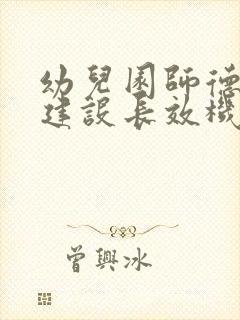 幼兒園師德
建設長效機
曾興冰